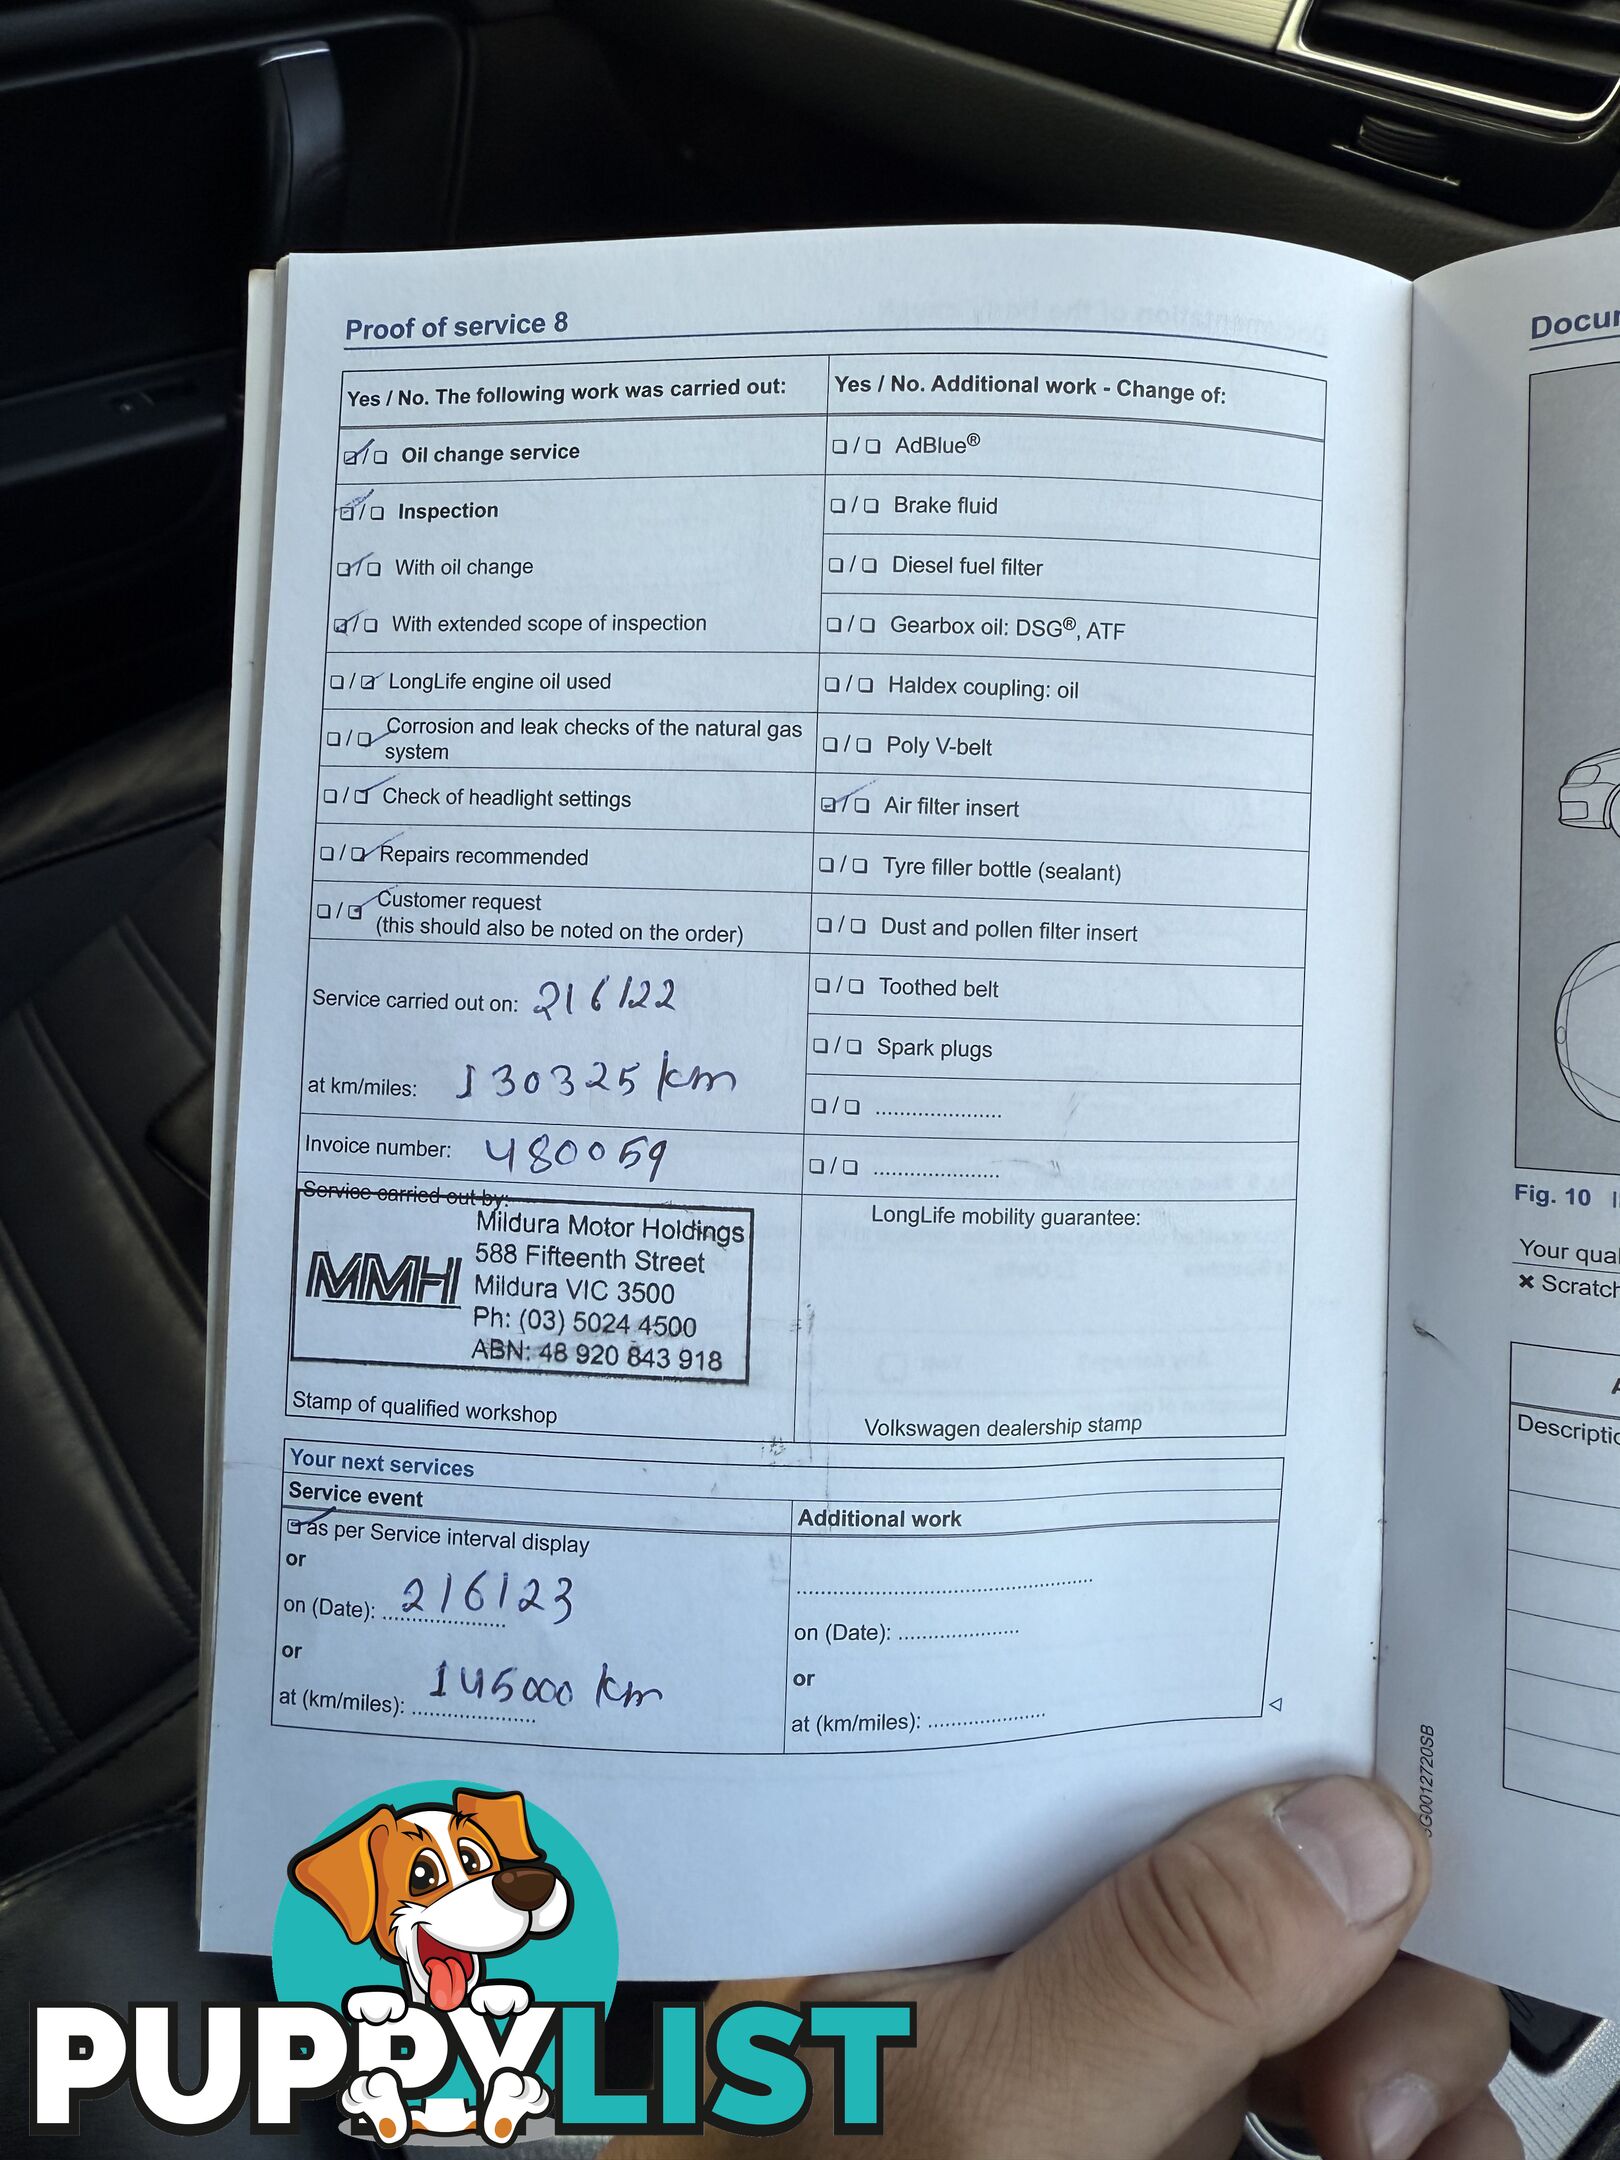 Proof of service 8
Yes / No. The following work was carried out:
☑ / ☐ Oil change service
☑ / ☐ Inspection
☑ / ☐ With oil change
☑ / ☐ With extended scope of inspection
☐ / ☑ LongLife engine oil used
☐ / ☑ Corrosion and leak checks of the natural gas
system
☐ / ☑ Check of headlight settings
☐ / ☑ Repairs recommended
☐ / ☑ Customer request
(this should also be noted on the order)
Service carried out on: 2/6/22
at km/miles: 130325 km
Invoice number: 480059
Service carried out by:
MMH
Mildura Motor Holdings
588 Fifteenth Street
Mildura VIC 3500
Ph: (03) 5024 4500
ABN: 48 920 843 918
Stamp of qualified workshop
Yes / No. Additional work - Change of:
☐ / ☐ AdBlue®
☐ / ☐ Brake fluid
☐ / ☐ Diesel fuel filter
☐ / ☐ Gearbox oil: DSG®, ATF
☐ / ☐ Haldex coupling: oil
☐ / ☐ Poly V-belt
☑ / ☐ Air filter insert
☐ / ☐ Tyre filler bottle (sealant)
☐ / ☐ Dust and pollen filter insert
☐ / ☐ Toothed belt
☐ / ☐ Spark plugs
☐ / ☐ .....................
☐ / ☐ .....................
LongLife mobility guarantee:
Volkswagen dealership stamp
Your next services
Service event
☑ as per Service interval display
or
on (Date): 2/6/23
or
at (km/miles): 145000 km
Additional work
..................................................
on (Date): ....................
or
at (km/miles): ....................
Docu
Fig. 10
Your qua
✖ Scratch
Descripti
G0012720SB
PUPPYLIST